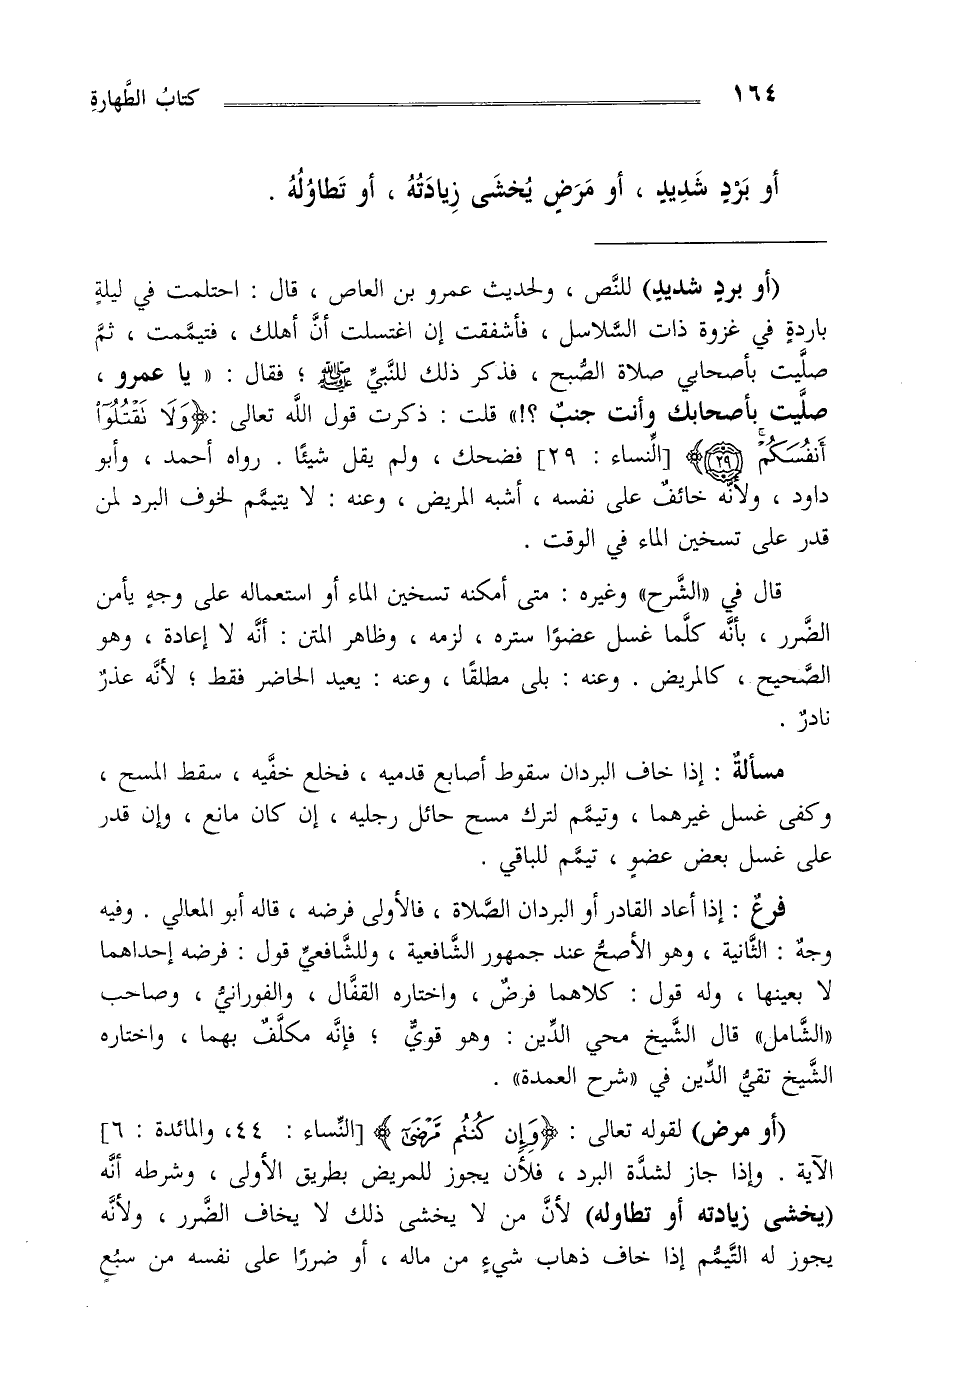 ١٦٤ كتابُ الطَّهارةِ
أو بَرْدٍ شَدِيدٍ ، أو مَرَضٍ يُخشَى زِيادَتُهُ ، أو تَطاوُلُهُ .
(أو بردٍ شديدٍ) للنَّص ، ولحديث عمرو بن العاص ، قال : احتلمت في ليلةٍ
باردةٍ في غزوة ذات السَّلاسل ، فأشفقت إن اغتسلت أنَّ أهلك ، فتيمَّمت ، ثمَّ
صلَّيت بأصحابي صلاة الصُّبح ، فذكر ذلك للنَّبيِّ ﷺ ؛ فقال : « يا عمرو ،
صلَّيت بأصحابك وأنت جنبٌ ؟!» قلت : ذكرت قول اللَّه تعالى :﴿وَلَا تَقْتُلُوٓا۟
أَنفُسَكُمْ ۚ ٢٩﴾ [النِّساء : ٢٩] فضحك ، ولم يقل شيئًا . رواه أحمد ، وأبو
داود ، ولأنَّه خائفٌ على نفسه ، أشبه المريض ، وعنه : لا يتيمَّم لخوف البرد لمن
قدر على تسخين الماء في الوقت .
قال في «الشَّرح» وغيره : متى أمكنه تسخين الماء أو استعماله على وجهٍ يأمن
الضَّرر ، بأنَّه كلَّما غسل عضوًا ستره ، لزمه ، وظاهر المتن : أنَّه لا إعادة ، وهو
الصَّحيح ، كالمريض . وعنه : بلى مطلقًا ، وعنه : يعيد الحاضر فقط ؛ لأنَّه عذرٌ
نادرٌ .
مسألةٌ : إذا خاف البردان سقوط أصابع قدميه ، فخلع خفَّيه ، سقط المسح ،
وكفى غسل غيرهما ، وتيمَّم لترك مسح حائل رجليه ، إن كان مانع ، وإن قدر
على غسل بعض عضوٍ ، تيمَّم للباقي .
فرعٌ : إذا أعاد القادر أو البردان الصَّلاة ، فالأولى فرضه ، قاله أبو المعالي . وفيه
وجهٌ : الثَّانية ، وهو الأصحُّ عند جمهور الشَّافعية ، وللشَّافعيِّ قول : فرضه إحداهما
لا بعينها ، وله قول : كلاهما فرضٌ ، واختاره القفَّال ، والفورانيُّ ، وصاحب
«الشَّامل» قال الشَّيخ محي الدِّين : وهو قويٌّ ؛ فإنَّه مكلَّفٌ بهما ، واختاره
الشَّيخ تقيُّ الدِّين في «شرح العمدة» .
(أو مرض) لقوله تعالى : ﴿وَإِن كُنتُم مَّرْضَىٰٓ﴾ [النِّساء : ٤٤، والمائدة : ٦]
الآية . وإذا جاز لشدَّة البرد ، فلأن يجوز للمريض بطريق الأولى ، وشرطه أنَّه
(يخشى زيادته أو تطاوله) لأنَّ من لا يخشى ذلك لا يخاف الضَّرر ، ولأنَّه
يجوز له التَّيمُّم إذا خاف ذهاب شيءٍ من ماله ، أو ضررًا على نفسه من سبُعٍ